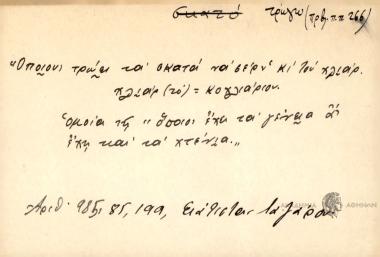 σκατό τρώγω (πρβ. ππ 266)
"Όποιους τρώει τα σκατά να σέρν' κι του χλιάρ.
χλιάρ (το) = κοχλιάριον.
Όμοια τη "όποιοι έχει τα γένεια ας
έχη και τα χτένια."
Αριθ. 985, 85, 199, Σιάτιστα,
ΑΚΑΔΗΜΙΑ ΑΘΗΝΩΝ